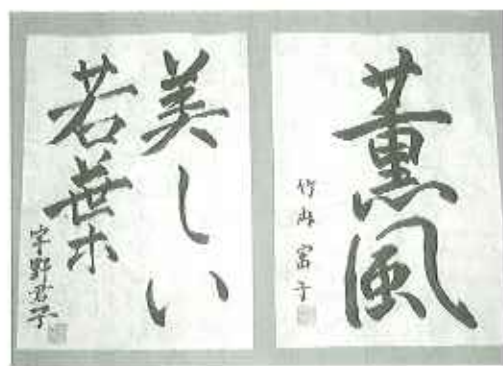 薫風
富子
美しい
若葉
宇野君子